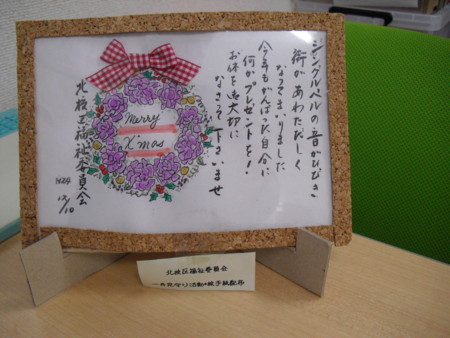 ジングルベルの音がひびき
街があわただしく
なってまいりました
今年もがんばった自分に
何かプレゼントを!
お体を大切に
なさって下さいませ
Merry
X'mas
北枝区福祉委員会
12/10
北枝区福祉委員会